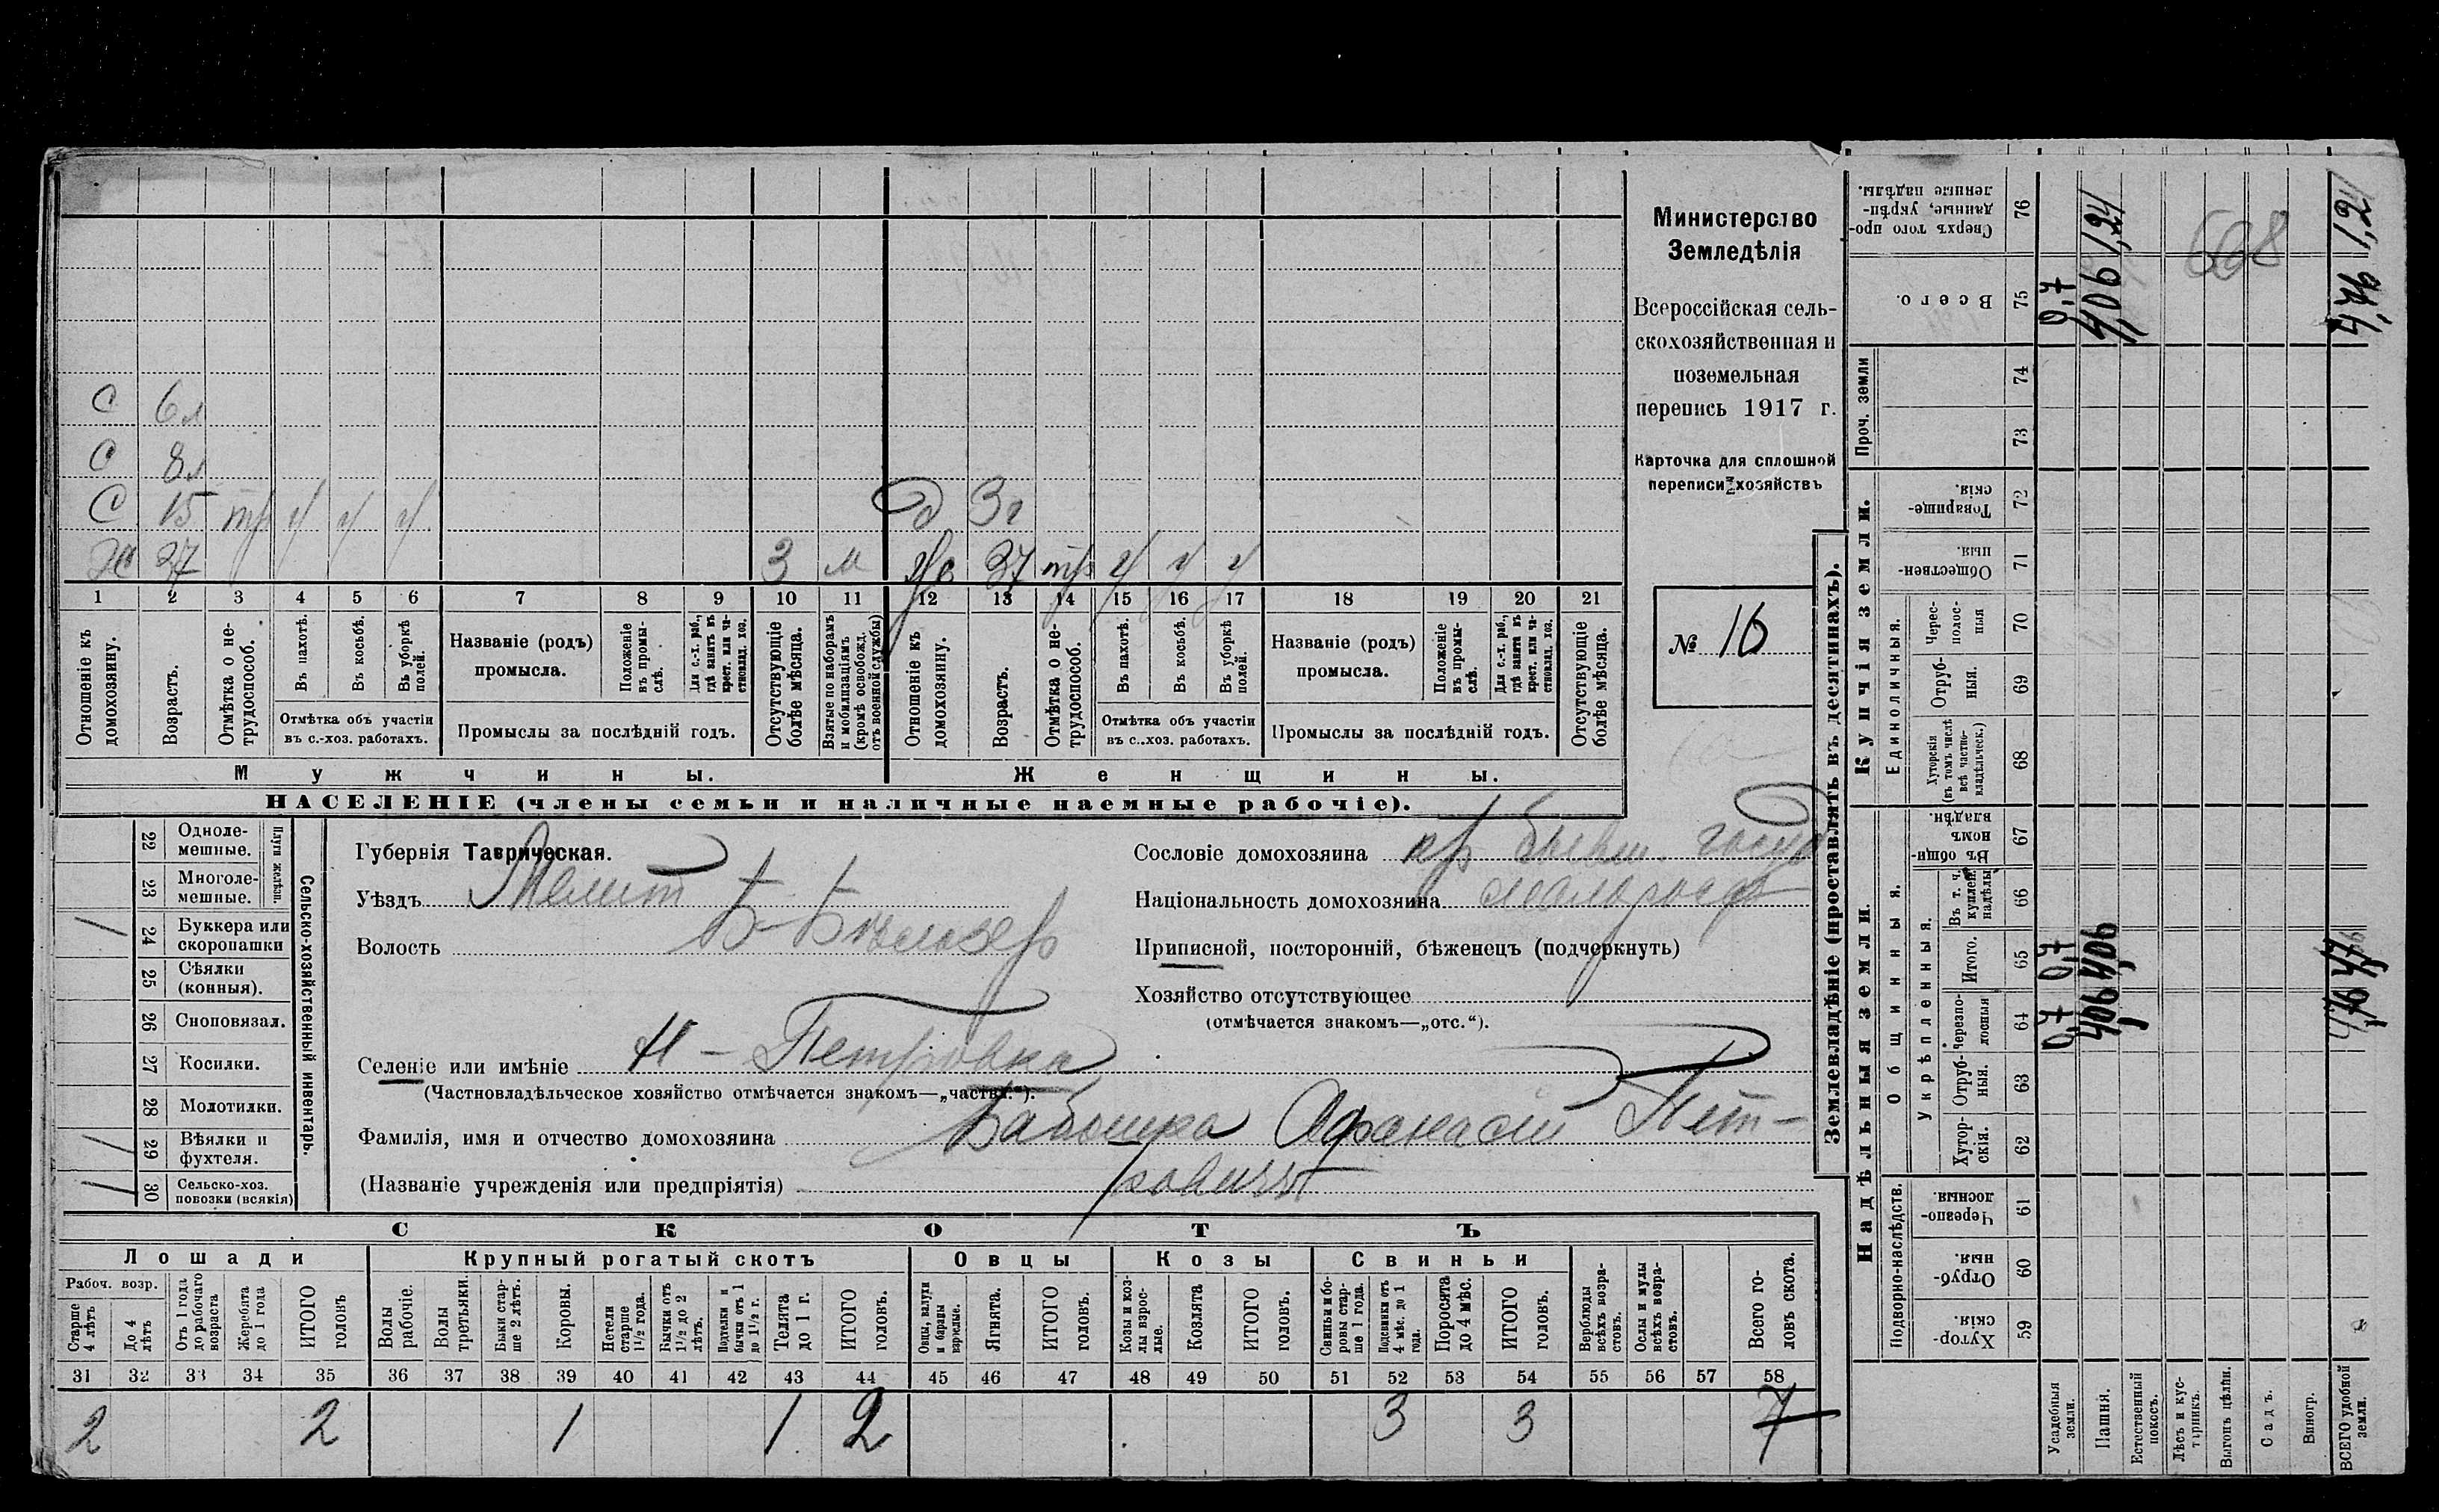 С 6 л
С 8 л
С 15 тр ч ч ч
Д 3 г
Хо 37 3 м
Же 37 тр ч ч ч
1 2 3 4 5 6 7 8 9 10 11 12 13 14 15 16 17 18 19 20 21
Отношеніе къ домохозяину.
Возрастъ.
Отмѣтка о нетрудоспособ.
Въ пахотѣ.
Въ косьбѣ.
Въ уборкѣ полей.
Отмѣтка объ участіи
въ с.-хоз. работахъ.
Названіе (родъ)
промысла.
Положеніе въ промыслѣ.
Для с.-х. раб., гдѣ занятъ въ крест. или частновлад. хоз.
Промыслы за послѣдній годъ.
Отсутствующіе болѣе мѣсяца.
Взятые по наборамъ и мобилизаціямъ (кромѣ освобожд. отъ военной службы)
Отношеніе къ домохозяину.
Возрастъ.
Отмѣтка о нетрудоспособ.
Въ пахотѣ.
Въ косьбѣ.
Въ уборкѣ полей.
Отмѣтка объ участіи
въ с..хоз. работахъ.
Названіе (родъ)
промысла.
Положеніе въ промыслѣ.
Для с.-х. раб., гдѣ занятъ въ крест. или частновлад. хоз.
Промыслы за послѣдній годъ.
Отсутствующіе болѣе мѣсяца.
Мужчины.
Женщины.
НАСЕЛЕНІЕ (члены семьи и наличные наемные рабочіе).
Министерство
Земледѣлія
Всероссійская сель-
скохозяйственная и
поземельная
перепись 1917 г.
Карточка для сплошной
переписи хозяйствъ
№ 16
22 Одноле-
мешные.
23 Многоле-
мешные.
Плуги желѣзн.
/ 24 Буккера или
скоропашки
25 Сѣялки
(конныя).
26 Сноповязал.
27 Косилки.
28 Молотилки.
/ 29 Вѣялки и
фухтеля.
/ 30 Сельско-хоз.
повозки (всякія)
Сельско-хозяйственный инвентарь.
Губернія Таврическая.
Уѣздъ Мелит
Волость Б-Бѣлозер
Селеніе или имѣніе Н-Петровка
(Частновладѣльческое хозяйство отмѣчается знакомъ—„частн.“).
Фамилія, имя и отчество домохозяина Бабошка Афанасій Пет-
ровичъ
(Названіе учрежденія или предпріятія)
Сословіе домохозяина кр бывш. госуд
Національность домохозяина малоросъ
Приписной, посторонній, бѣженецъ (подчеркнуть)
Хозяйство отсутствующее
(отмѣчается знакомъ—„отс.“).
СКОТЪ
Лошади
Крупный рогатый скотъ
Овцы
Козы
Свиньи
Рабоч. возр.
Старше 4 лѣтъ
До 4 лѣтъ
Отъ 1 года до рабочаго возраста
Жеребята до 1 года
ИТОГО головъ
Волы рабочіе.
Волы третьяки.
Быки старше 2 лѣтъ.
Коровы.
Нетели старше 1 1/2 года.
Бычки отъ 1 1/2 до 2 лѣтъ.
Подтелки и бычки отъ 1 до 1 1/2 г.
Телята до 1 г.
ИТОГО головъ.
Овцы, валухи и бараны взрослые.
Ягнята.
ИТОГО головъ.
Козы и козлы взрослые.
Козлята
ИТОГО головъ.
Свиньи и боровы старше 1 года.
Подсвинки отъ 4 мѣс. до 1 года.
Поросята до 4 мѣс.
ИТОГО головъ.
Верблюды всѣхъ возрастовъ.
Ослы и мулы всѣхъ возрастовъ.
Всего головъ скота.
31 32 33 34 35 36 37 38 39 40 41 42 43 44 45 46 47 48 49 50 51 52 53 54 55 56 57 58
2 2 1 1 2 3 3 7
Землевладѣніе (проставлять въ десятинахъ).
Надѣльныя земли.
Купчія земли.
Проч. земли
Подворно-наслѣдств.
Общинныя.
Укрѣпленныя.
Единоличныя.
Сверхъ того проданные, укрѣпленные надѣлы. 76
Всего. 75
74
73
Товарищескія. 72
Общественныя. 71
Чересполосныя 70
Отрубныя. 69
Хуторскія (въ томъ числѣ всѣ частновладѣльческ.) 68
Въ общинномъ владѣн. 67
Въ т. ч. куплен. надѣлы 66
Итого. 65
Черезполосныя 64
Отрубныя. 63
Хуторскія. 62
Черезполосныя. 61
Отрубныя. 60
Хуторскія. 59
Усадебныя земли. 0,7 0,7 0,7
Пашня. 4,06 4,06 4,06 1,24
Естественный покосъ.
Лѣсъ и кустарникъ.
Выгонъ цѣлин.
Садъ.
Виногр.
ВСЕГО удобной земли. 1,24
668